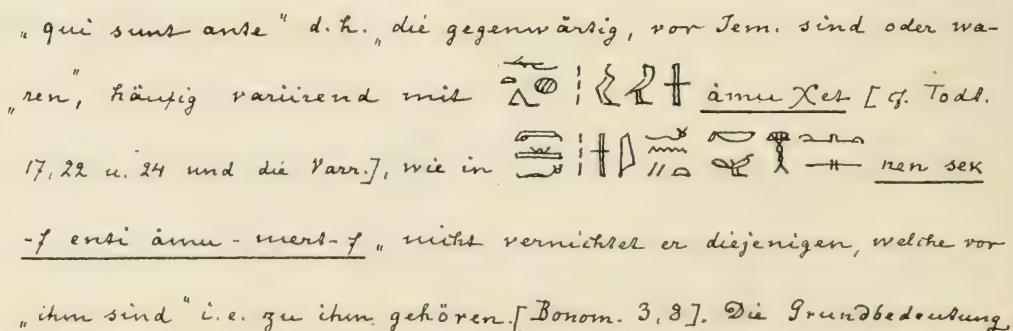 „qui sunt ante“ d.h. „die gegenwärtig, vor Jem. sind oder wa-
„ren“, häufig variirend mit åmu χet [cf. Todt.
17, 22 u. 24 und die Varr.], wie in nen sek
-f enti åmu-mert-f „nicht vernichtet er diejenigen, welche vor
„ihm sind“ i.e. zu ihm gehören. [Bonom. 3, 8]. Die Grundbedeutung